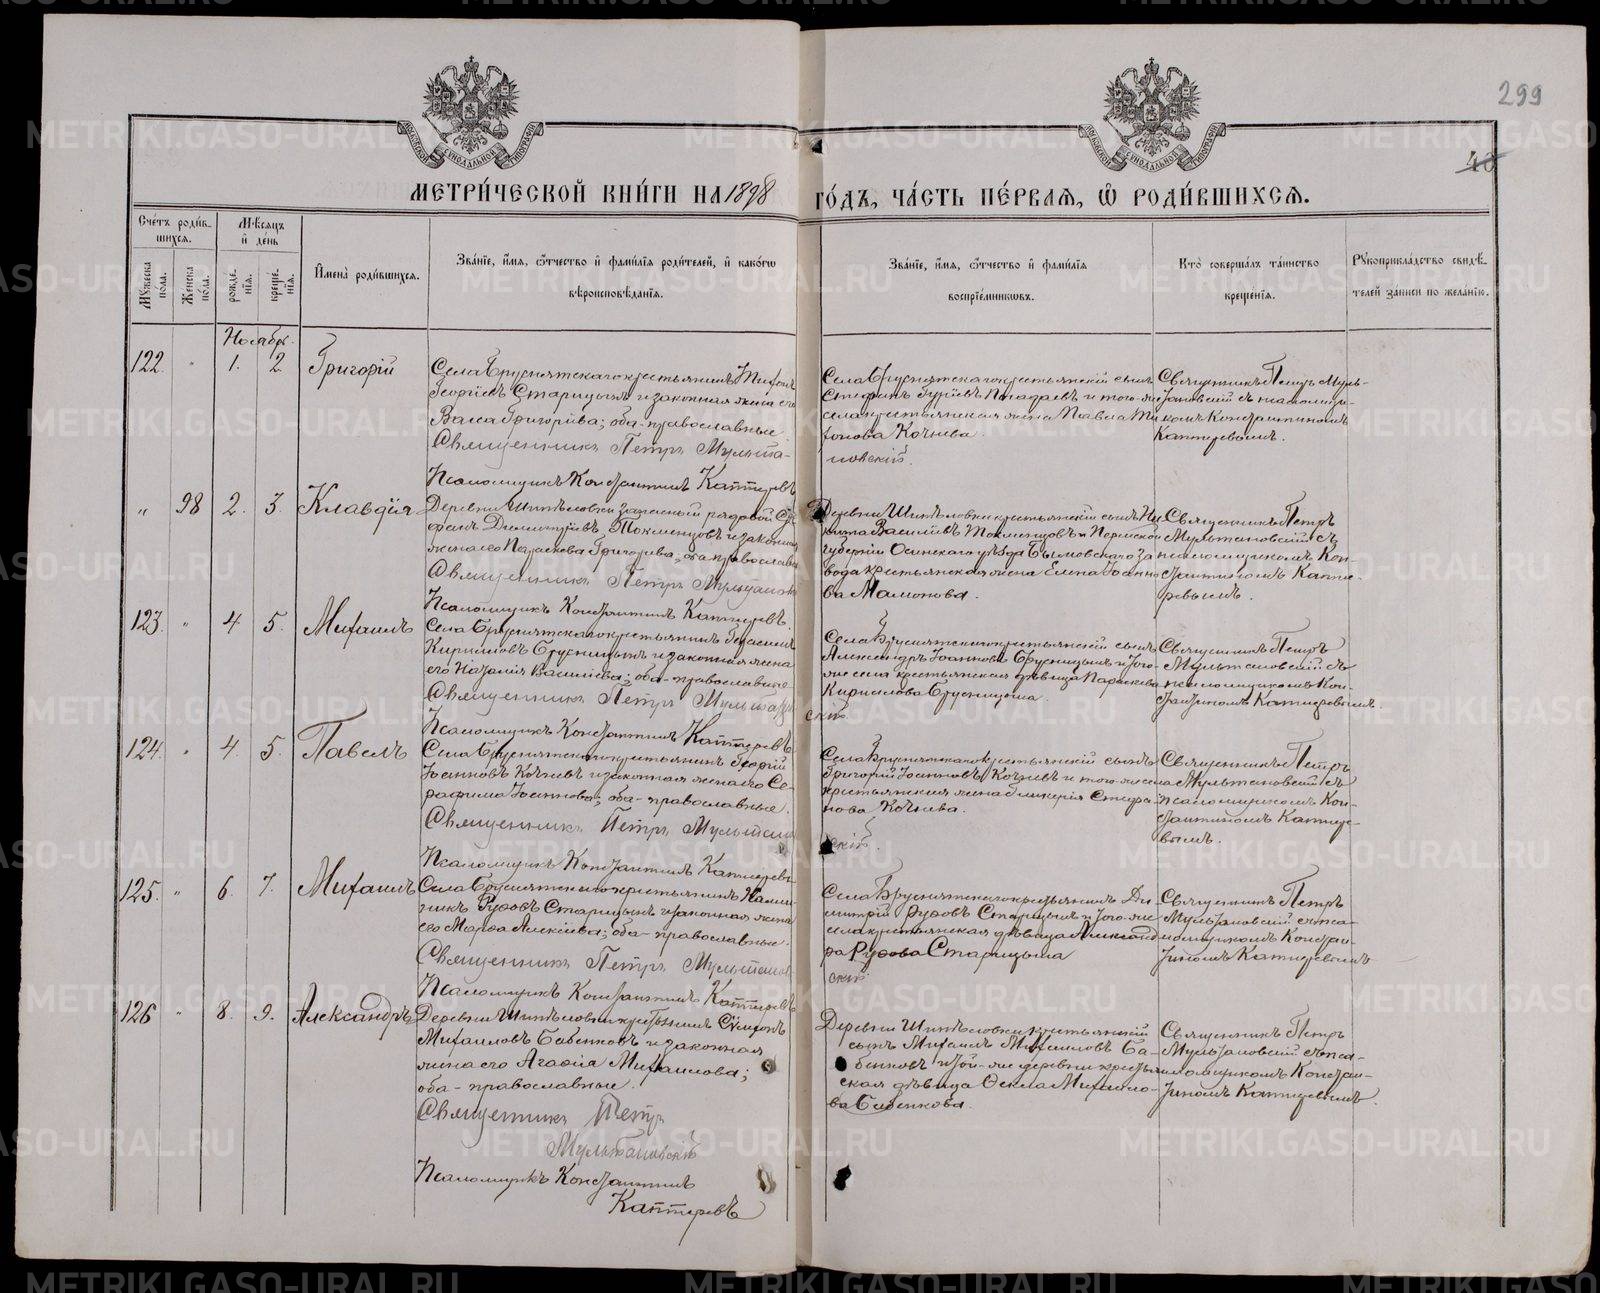 299
40
МЕТРИ́ЧЕСКОЙ КНИ́ГИ НА 1898 ГО́ДЪ, ЧА́СТЬ ПЕ́РВАЯ, Ѡ РОДИ́ВШИХСЯ.
Сче́тъ роди́в-
шихся.
Му́жеска по́ла.
Же́нска по́ла.
Мѣ́сяцъ
и де́нь
рожде́нія.
креще́нія.
И́мена роди́вшихся.
Зва́ніе, и́мя, ѻ́тчество и фами́лія роди́телей, и како́гѡ
вѣроисповѣ́данія.
Зва́ніе, и́мя, ѻ́тчество и фами́лія
воспріе́мниковъ.
Кто̀ соверша́лъ та́инство
креще́нія.
Рукоприкла́дство свидѣ́-
телей за́писи по жела́нію.
Ноябрь.
122 " 1. 2. Григорій
Села Бруснятскаго крестьянинъ Тихонъ
Георгіевъ Старицынъ и законная жена его
Васса Григорьева; оба-православные.
Священникъ Петръ Мульта-
новскій.
Псаломщикъ Константинъ Каптеревъ
Села Бруснятскаго крестьянскій сынъ
Стефанъ Гуріевъ и того-же
села крестьянская жена Павла Ти-
хонова Кочнева.
Священникъ Петръ Муль-
тановскій съ псаломщи-
комъ Константиномъ
Каптеревымъ.
" 98 2. 3. Клавдія
Деревни Шипѣловки запасный рядовой Сте-
фанъ Димитріевъ Токменцовъ и законная
жена его Параскева Григорьева; оба православные
Священникъ Петръ Мультановскій
Псаломщикъ Константинъ Каптеревъ.
Деревни Шипѣловки крестьянскій сынъ Ни-
кита Васильевъ Токменцовъ и Пермской
губерніи Осинскаго уѣзда Бымовскаго за-
вода крестьянская жена Елена Іоанно-
ва Мамонова.
Священникъ Петръ
Мультановскій съ
псаломщикомъ Кон-
стантиномъ Капте-
ревымъ.
123. " 4 5. Михаилъ
Села Бруснятскаго крестьянинъ Герасимъ
Кириловъ Брусницынъ и законная жена
его Наталія Васильева; оба-православные
Священникъ Петръ Мультанов-
скій.
Псаломщикъ Константинъ Каптеревъ
Села Бруснятскаго крестьянскій сынъ
Александръ Іоанновъ Брусницынъ и того-
же села крестьянская дѣвица Параскева
Кириллова Брусницына.
Священникъ Петръ
Мультановскій съ
псаломщикомъ Кон-
стантиномъ Каптеревымъ.
124. " 4 5. Павелъ
Села Бруснятскаго крестьянинъ Георгій
Іоанновъ Кочневъ и законная жена его Се-
рафима Іоаннова; оба-православные.
Священникъ Петръ Мультанов-
скій.
Псаломщикъ Константинъ Каптеревъ
Села Бруснятскаго крестьянскій сынъ
Григорій Іоанновъ Кочневъ и того-же села
крестьянская жена Гликерія Стефа-
нова Кочнева.
Священникъ Петръ
Мультановскій съ
псаломщикомъ Кон-
стантиномъ Капте-
вымъ.
125. " 6. 7. Михаилъ
Села Бруснятскаго крестьянинъ
Руфовъ Старицынъ и законная жена
его Марѳа Алексѣева; оба-православные.
Священникъ Петръ Мультанов-
скій
Псаломщикъ Константинъ Каптеревъ
Села Бруснятскаго крестьянинъ Ди-
митрій Руфовъ Старицынъ и того-же
села крестьянская дѣвица Александ-
ра Руфова Старицына
Священникъ Петръ
Мультановскій съ пса-
ломщикомъ Констан-
тиномъ Каптеревымъ
126 " 8. 9. Александръ
Деревни Шипѣловки крестьянинъ Сѵмеонъ
Михаиловъ Бабенковъ и законная
жена его Агаѳія Михаилова;
оба-православные.
Священникъ Петръ
Мультановскій
Псаломщикъ Константинъ
Каптеревъ
Деревни Шипѣловки крестьянскій
сынъ Михаилъ Михаиловъ Ба-
бенковъ и той-же деревни крестьян-
ская дѣвица Ѳекла Михаило-
ва Бабенкова.
Священникъ Петръ
Мультановскій съ пса-
ломщикомъ Констан-
тиномъ Каптеревымъ.
METRIKI.GASO-URAL.RU